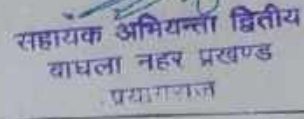 सहायक अभियन्ता द्वितीय
बाघला नहर प्रखण्ड
प्रयागराज